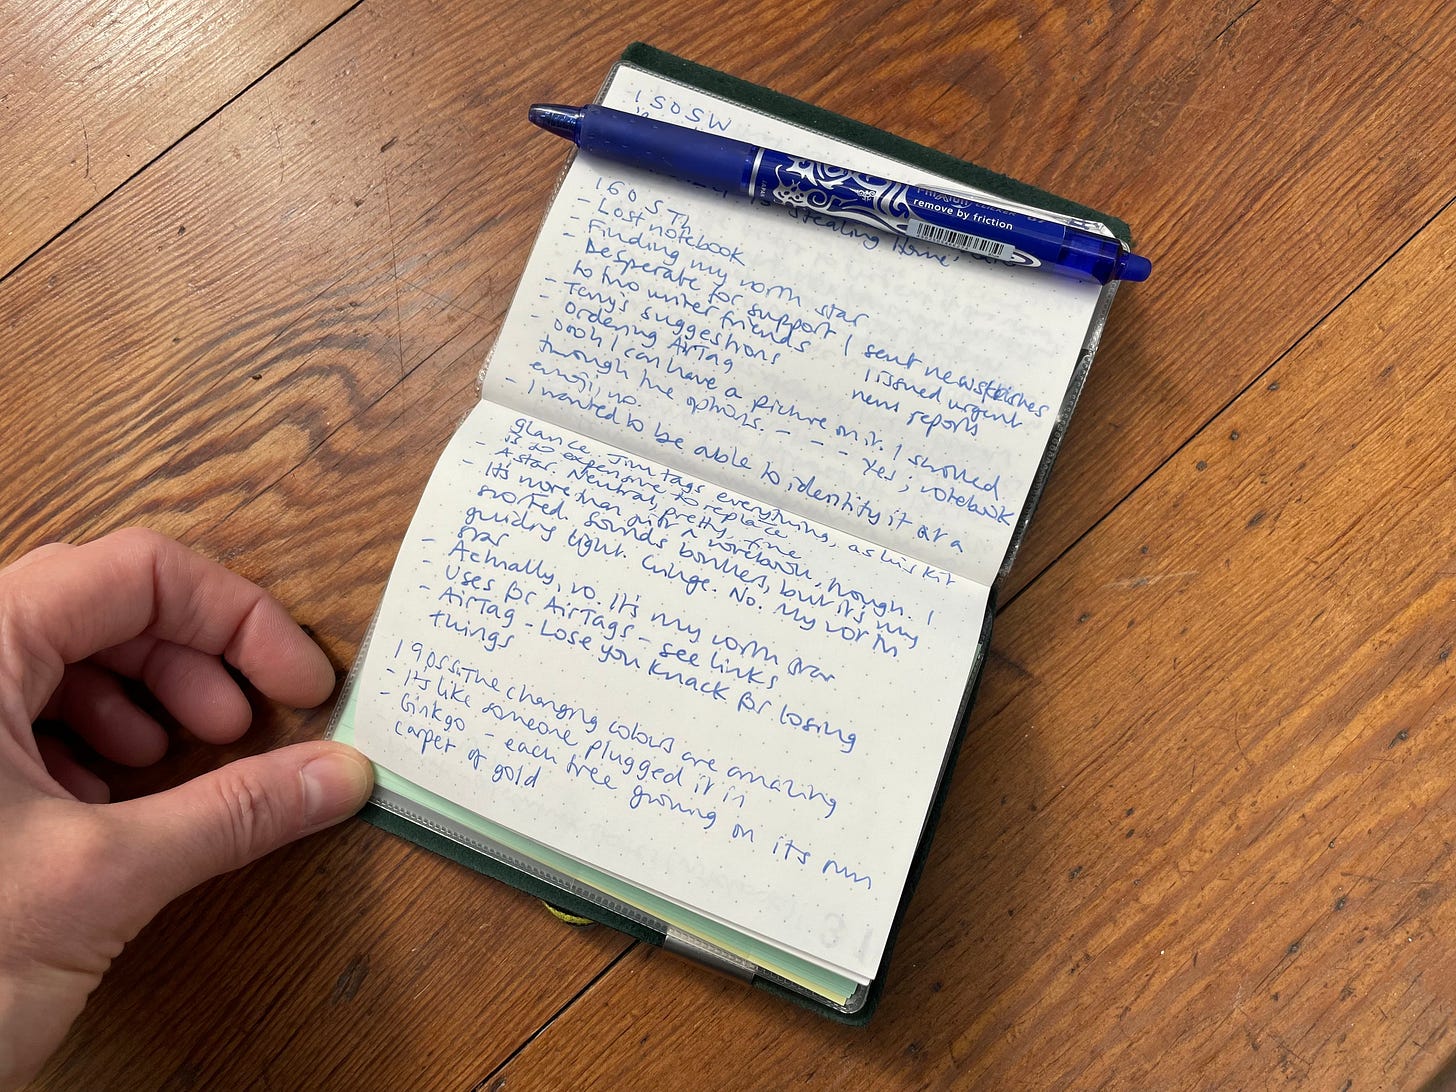 150SW
stealing home, are
FRIXION CLICKER 07
remove by friction
160 STh
- Lost notebook
- Finding my north star
Desperate for support I sent newsflashes
to two writer friends I issued urgent
news reports
- suggestions
- Ordering AirTag
oooh I can have a picture on it. I scrolled
through the options. - - Yes; notebook
emoji, no.
- I wanted to be able to identify it at a
glance. Jim tags everything, as his kit
is so expensive to replace
- A star. Neutral, pretty, fine
- It's more than just a notebook, though. I
snorted. Sounds bonkers, but it's my
guiding light. Cringe. No. My north
star
- Actually, no. It's my north star
- Uses for AirTags - see links
- AirTag - Lose you knack for losing
things
190SS The changing colours are amazing
- It's like someone plugged it in
- Ginkgo - each tree growing on its own
carpet of gold